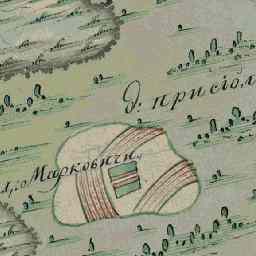 д. присіол
д. Марковичи